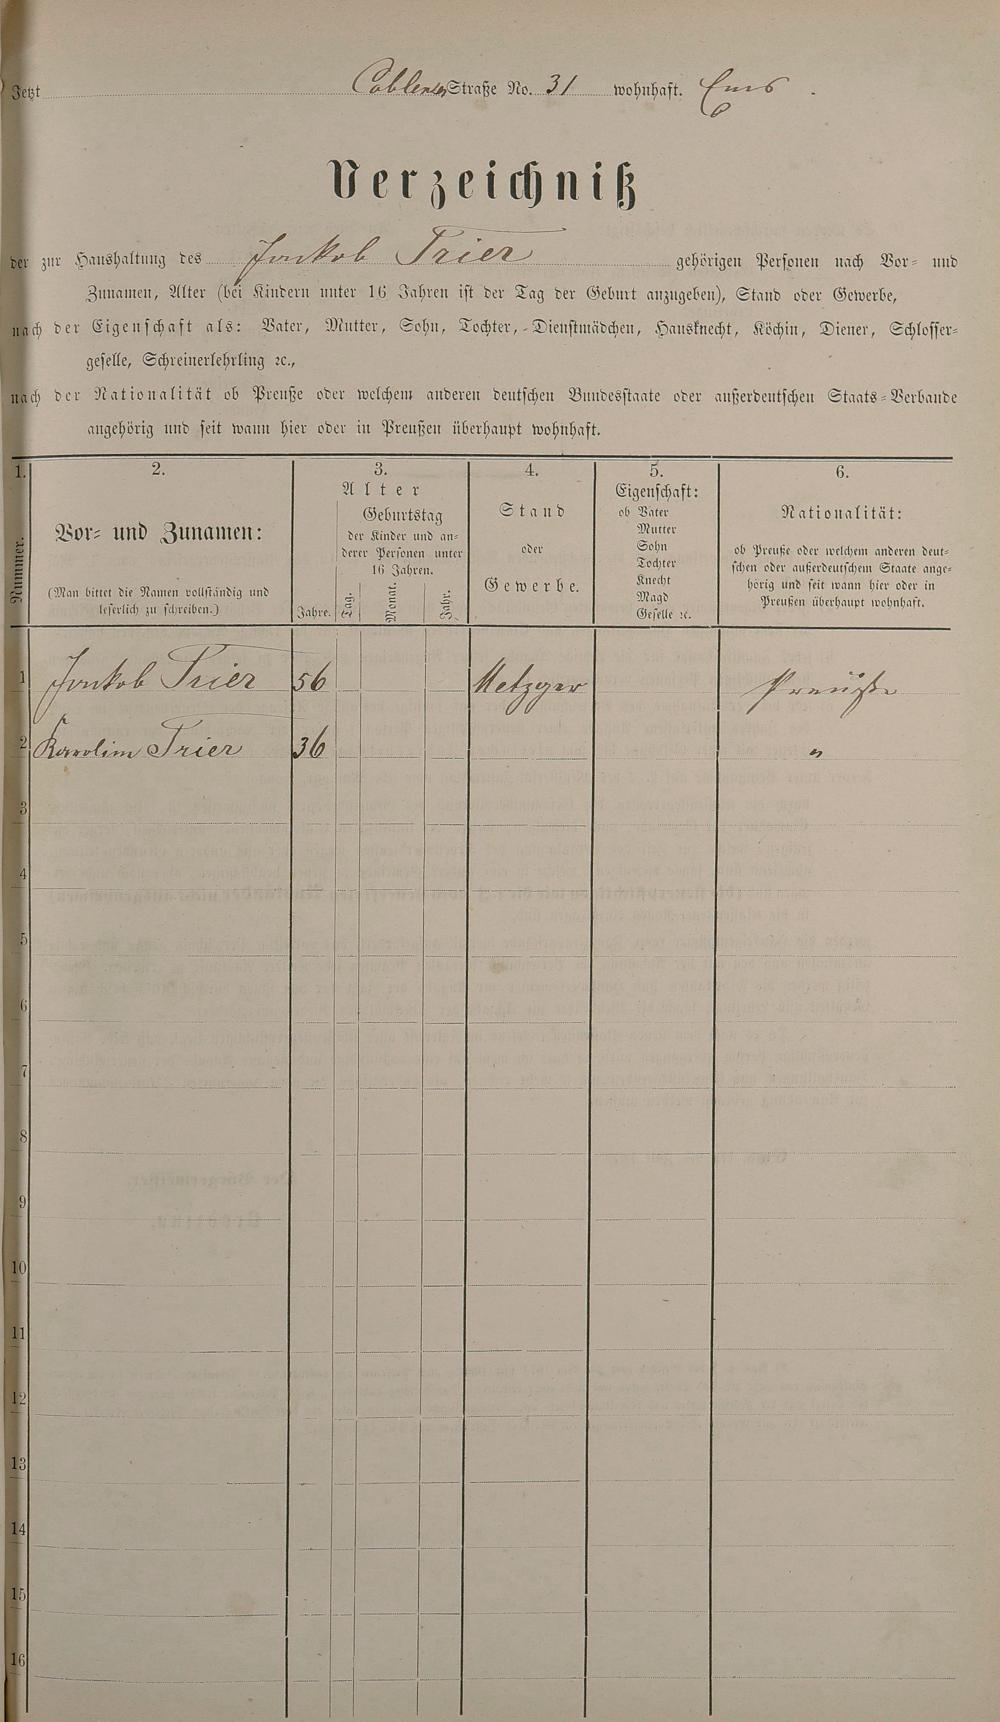 Jetzt Coblenzer Straße No. 31 wohnhaft. Ems
Verzeichniß
der zur Haushaltung des Jakob Trier gehörigen Personen nach Vor- und
Zunamen, Alter (bei Kindern unter 16 Jahren ist der Tag der Geburt anzugeben), Stand oder Gewerbe,
nach der Eigenschaft als: Vater, Mutter, Sohn, Tochter, Dienstmädchen, Hausknecht, Köchin, Diener, Schlosser-
geselle, Schreinerlehrling ꝛc.,
nach der Nationalität ob Preuße oder welchem anderen deutschen Bundesstaate oder außerdeutschen Staats-Verbande
angehörig und seit wann hier oder in Preußen überhaupt wohnhaft.
1.
Nummer.
2.
Vor- und Zunamen:
(Man bittet die Namen vollständig und
leserlich zu schreiben.)
3.
Alter
Jahre.
Geburtstag
der Kinder und an-
derer Personen unter
16 Jahren.
Tag.
Monat.
Jahr.
4.
Stand
oder
Gewerbe.
5.
Eigenschaft:
ob Vater
Mutter
Sohn
Tochter
Knecht
Magd
Geselle ꝛc.
6.
Nationalität:
ob Preuße oder welchem anderen deut-
schen oder außerdeutschem Staate ange-
hörig und seit wann hier oder in
Preußen überhaupt wohnhaft.
1 Jakob Trier 56 Metzger Preuße
2 Karolin Trier 36 "
3
4
5
6
7
8
9
10
11
12
13
14
15
16